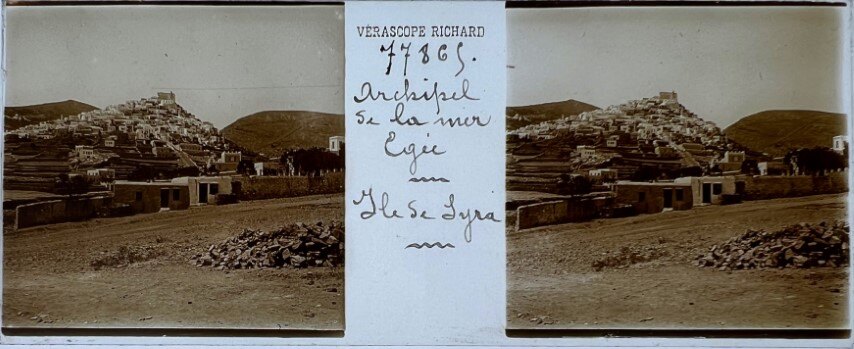 VÉRASCOPE RICHARD
77865.
Archipel
de la mer
Egée
Ile de Syra